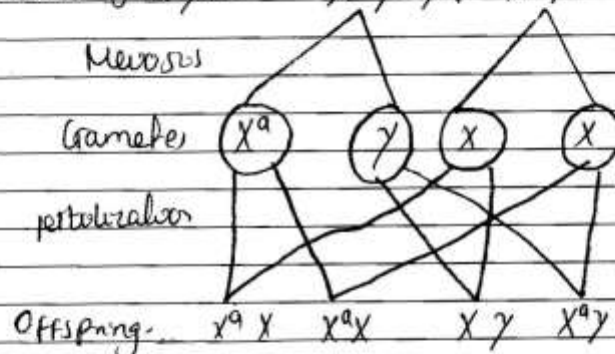 Meiosis
Gametes X^a Y X X
fertilization
Offspring. X^a X X^a X X Y X^a Y